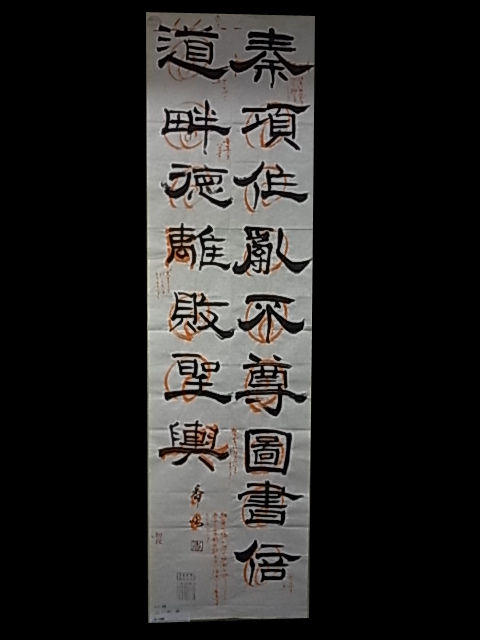 秦項作亂不尊圖書倍
道畔德離敗聖輿